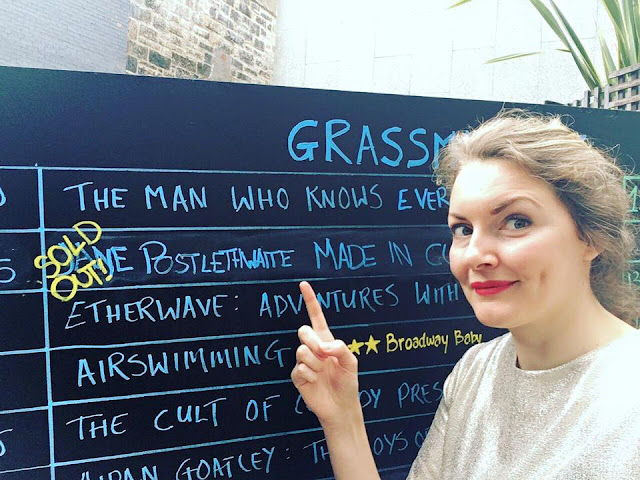 GRASSM
THE MAN WHO KNOWS EVER
SOLD OUT!
POSTLETHWAITE MADE IN
ETHERWAVE: ADVENTURES WITH
AIRSWIMMING ★★ Broadway Baby
THE CULT OF PRES
GOATLEY: THE OYS